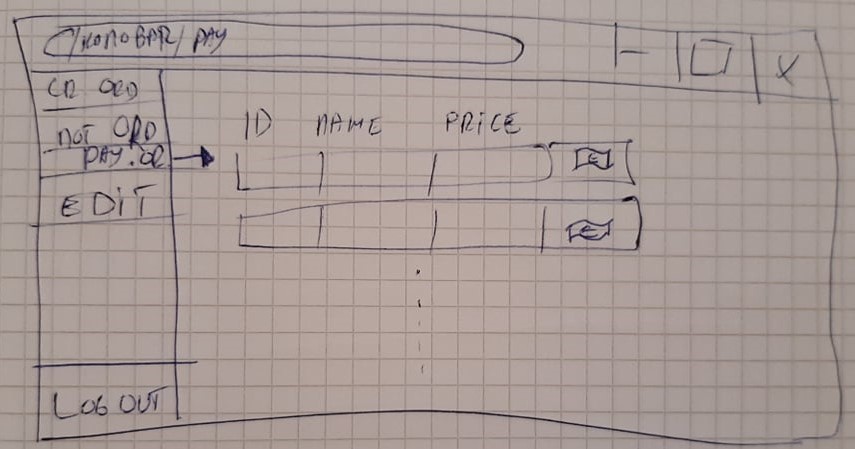 /KONOBAR/ PAY
X
CR ORD
NOT ORD
PAY.OR
EDIT
LOG OUT
ID NAME PRICE
€
€